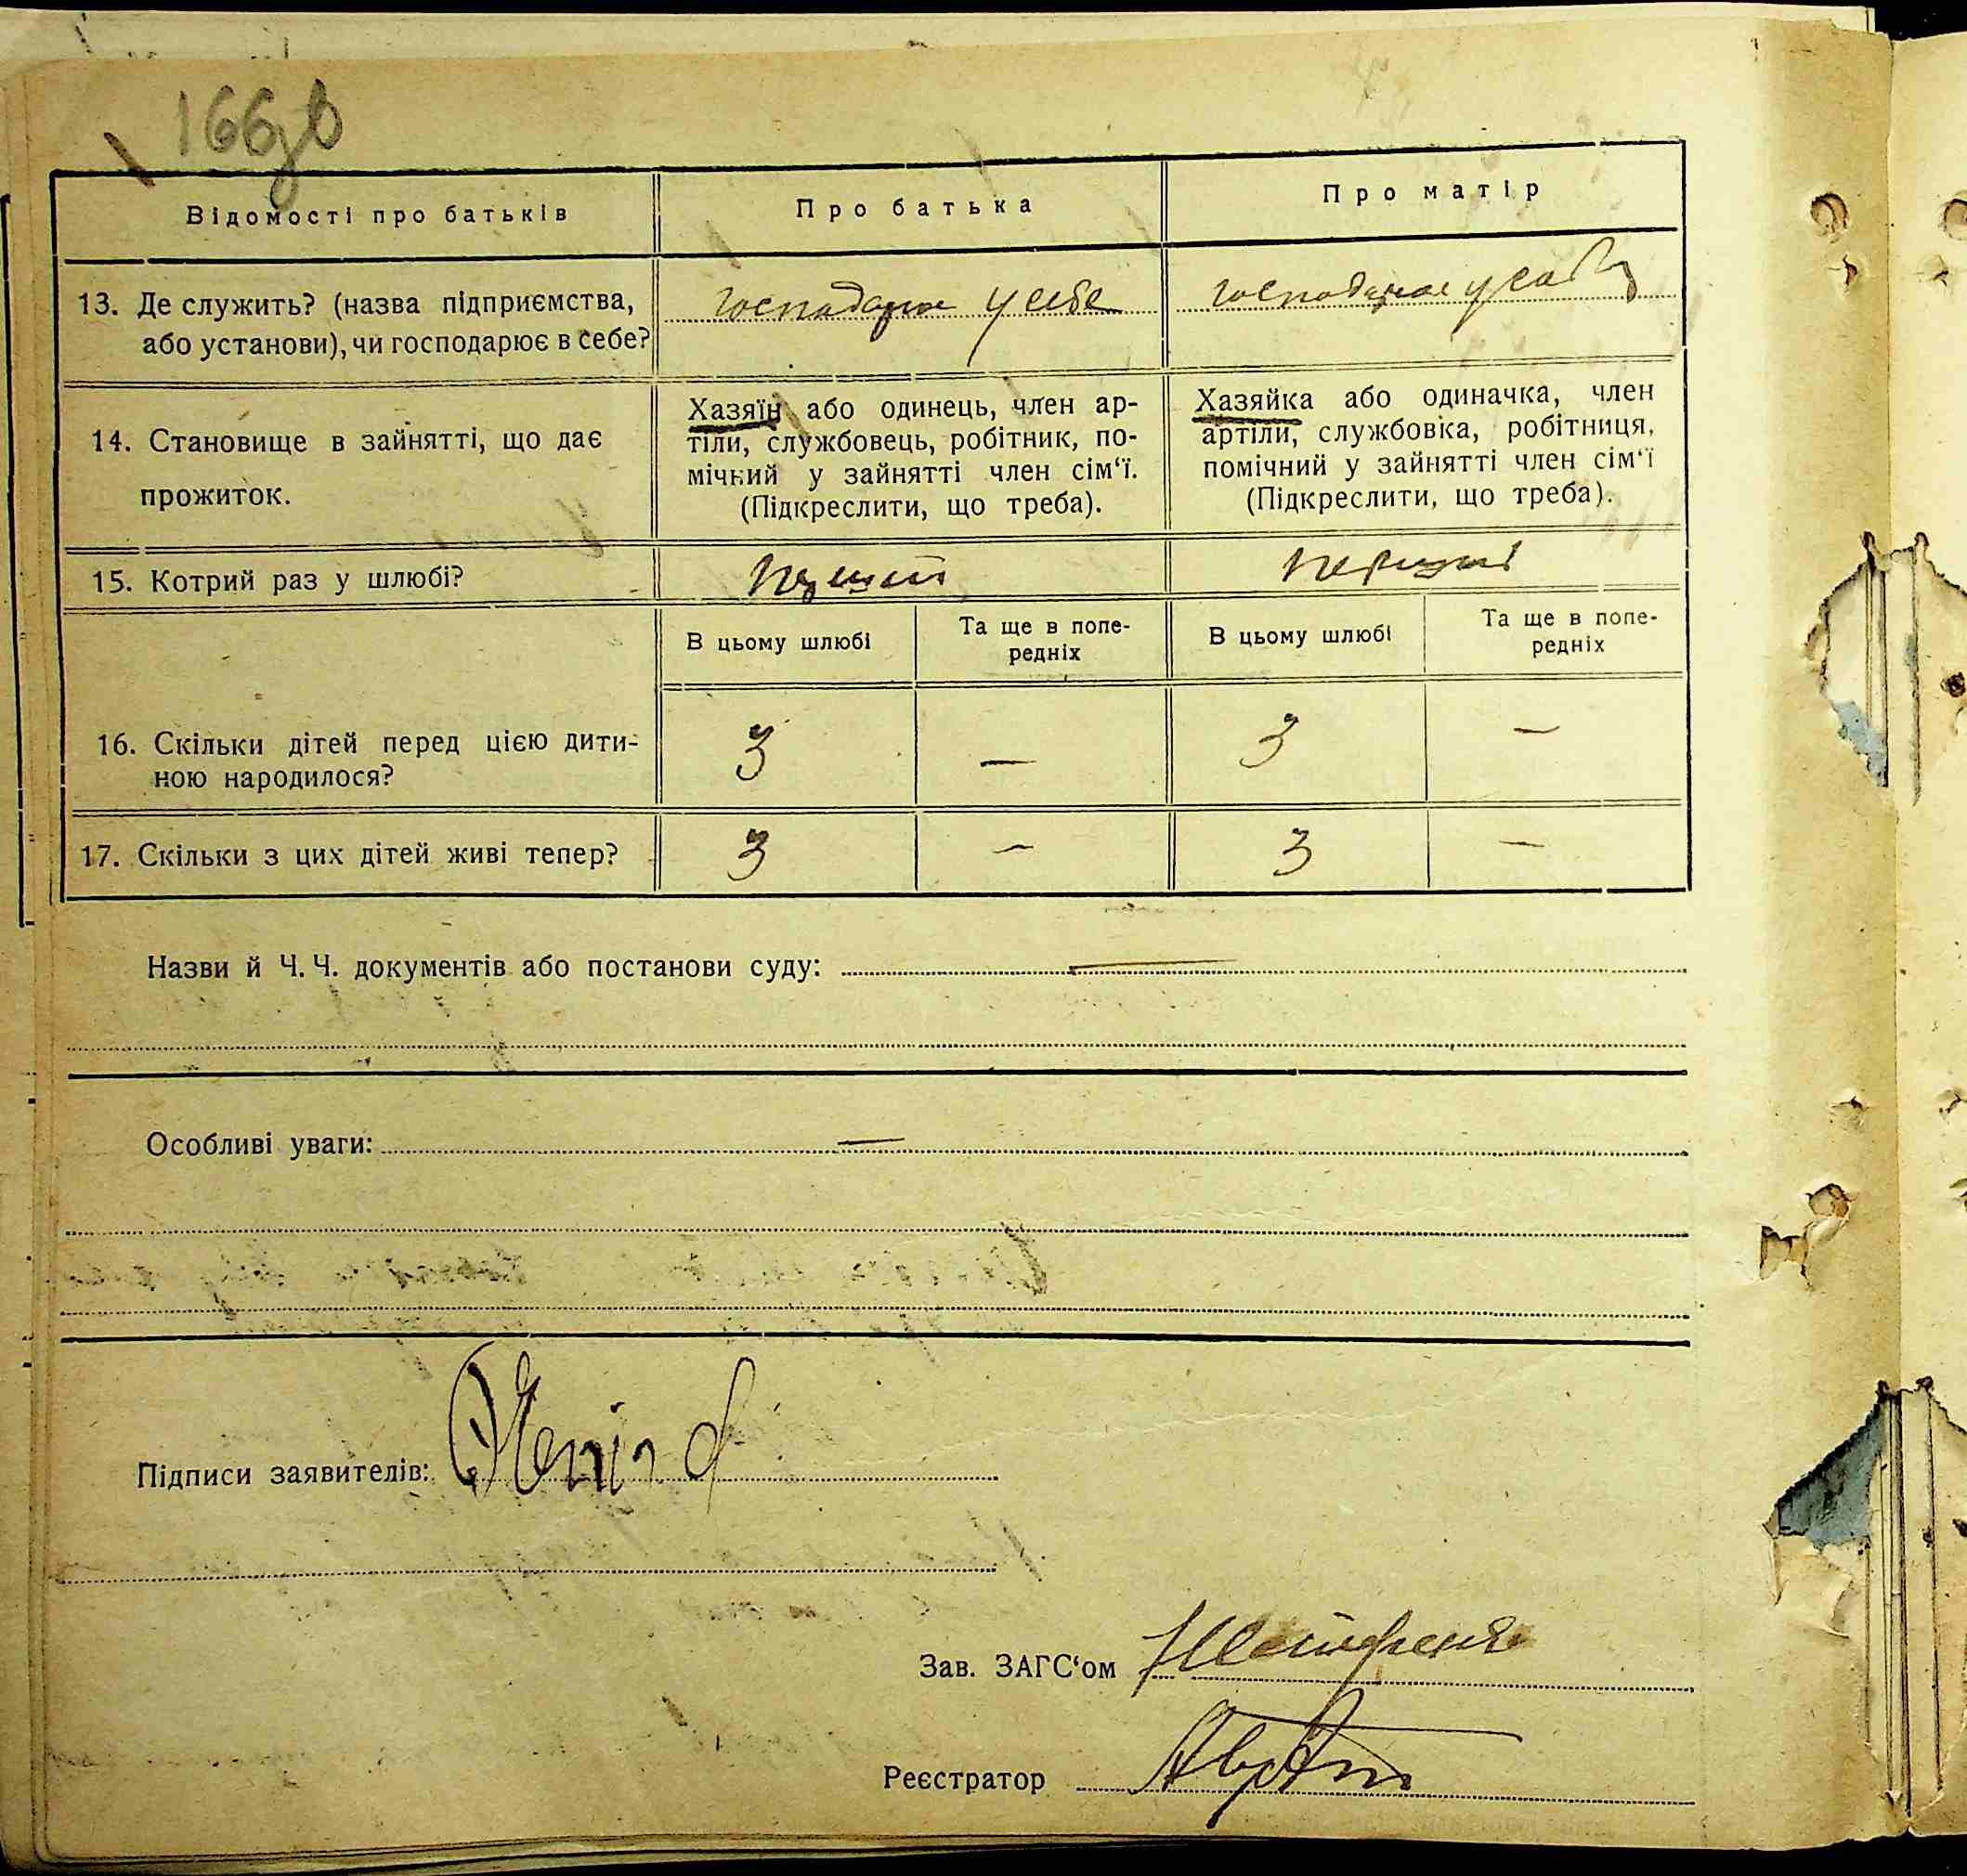 166зв
Відомості про батьків
Про батька
Про матір
13. Де служить? (назва підприємства,
або установи), чи господарює в себе?
господарює у себе
господарює у себе
14. Становище в зайнятті, що дає
прожиток.
Хазяїн або одинець, член ар-
тіли, службовець, робітник, по-
мічний у зайнятті член сім‘ї.
(Підкреслити, що треба).
Хазяйка або одиначка, член
артіли, службовіка, робітниця,
помічний у зайнятті член сім‘ї
(Підкреслити, що треба).
15. Котрий раз у шлюбі?
перший
перший
В цьому шлюбі
Та ще в попе-
редніх
В цьому шлюбі
Та ще в попе-
редніх
16. Скільки дітей перед цією дити-
ною народилося?
3 — 3 —
17. Скільки з цих дітей живі тепер?
3 — 3 —
Назви й Ч. Ч. документів або постанови суду: —
Особливі уваги: —
Підписи заявителів:
Зав. ЗАГС‘ом
Реєстратор